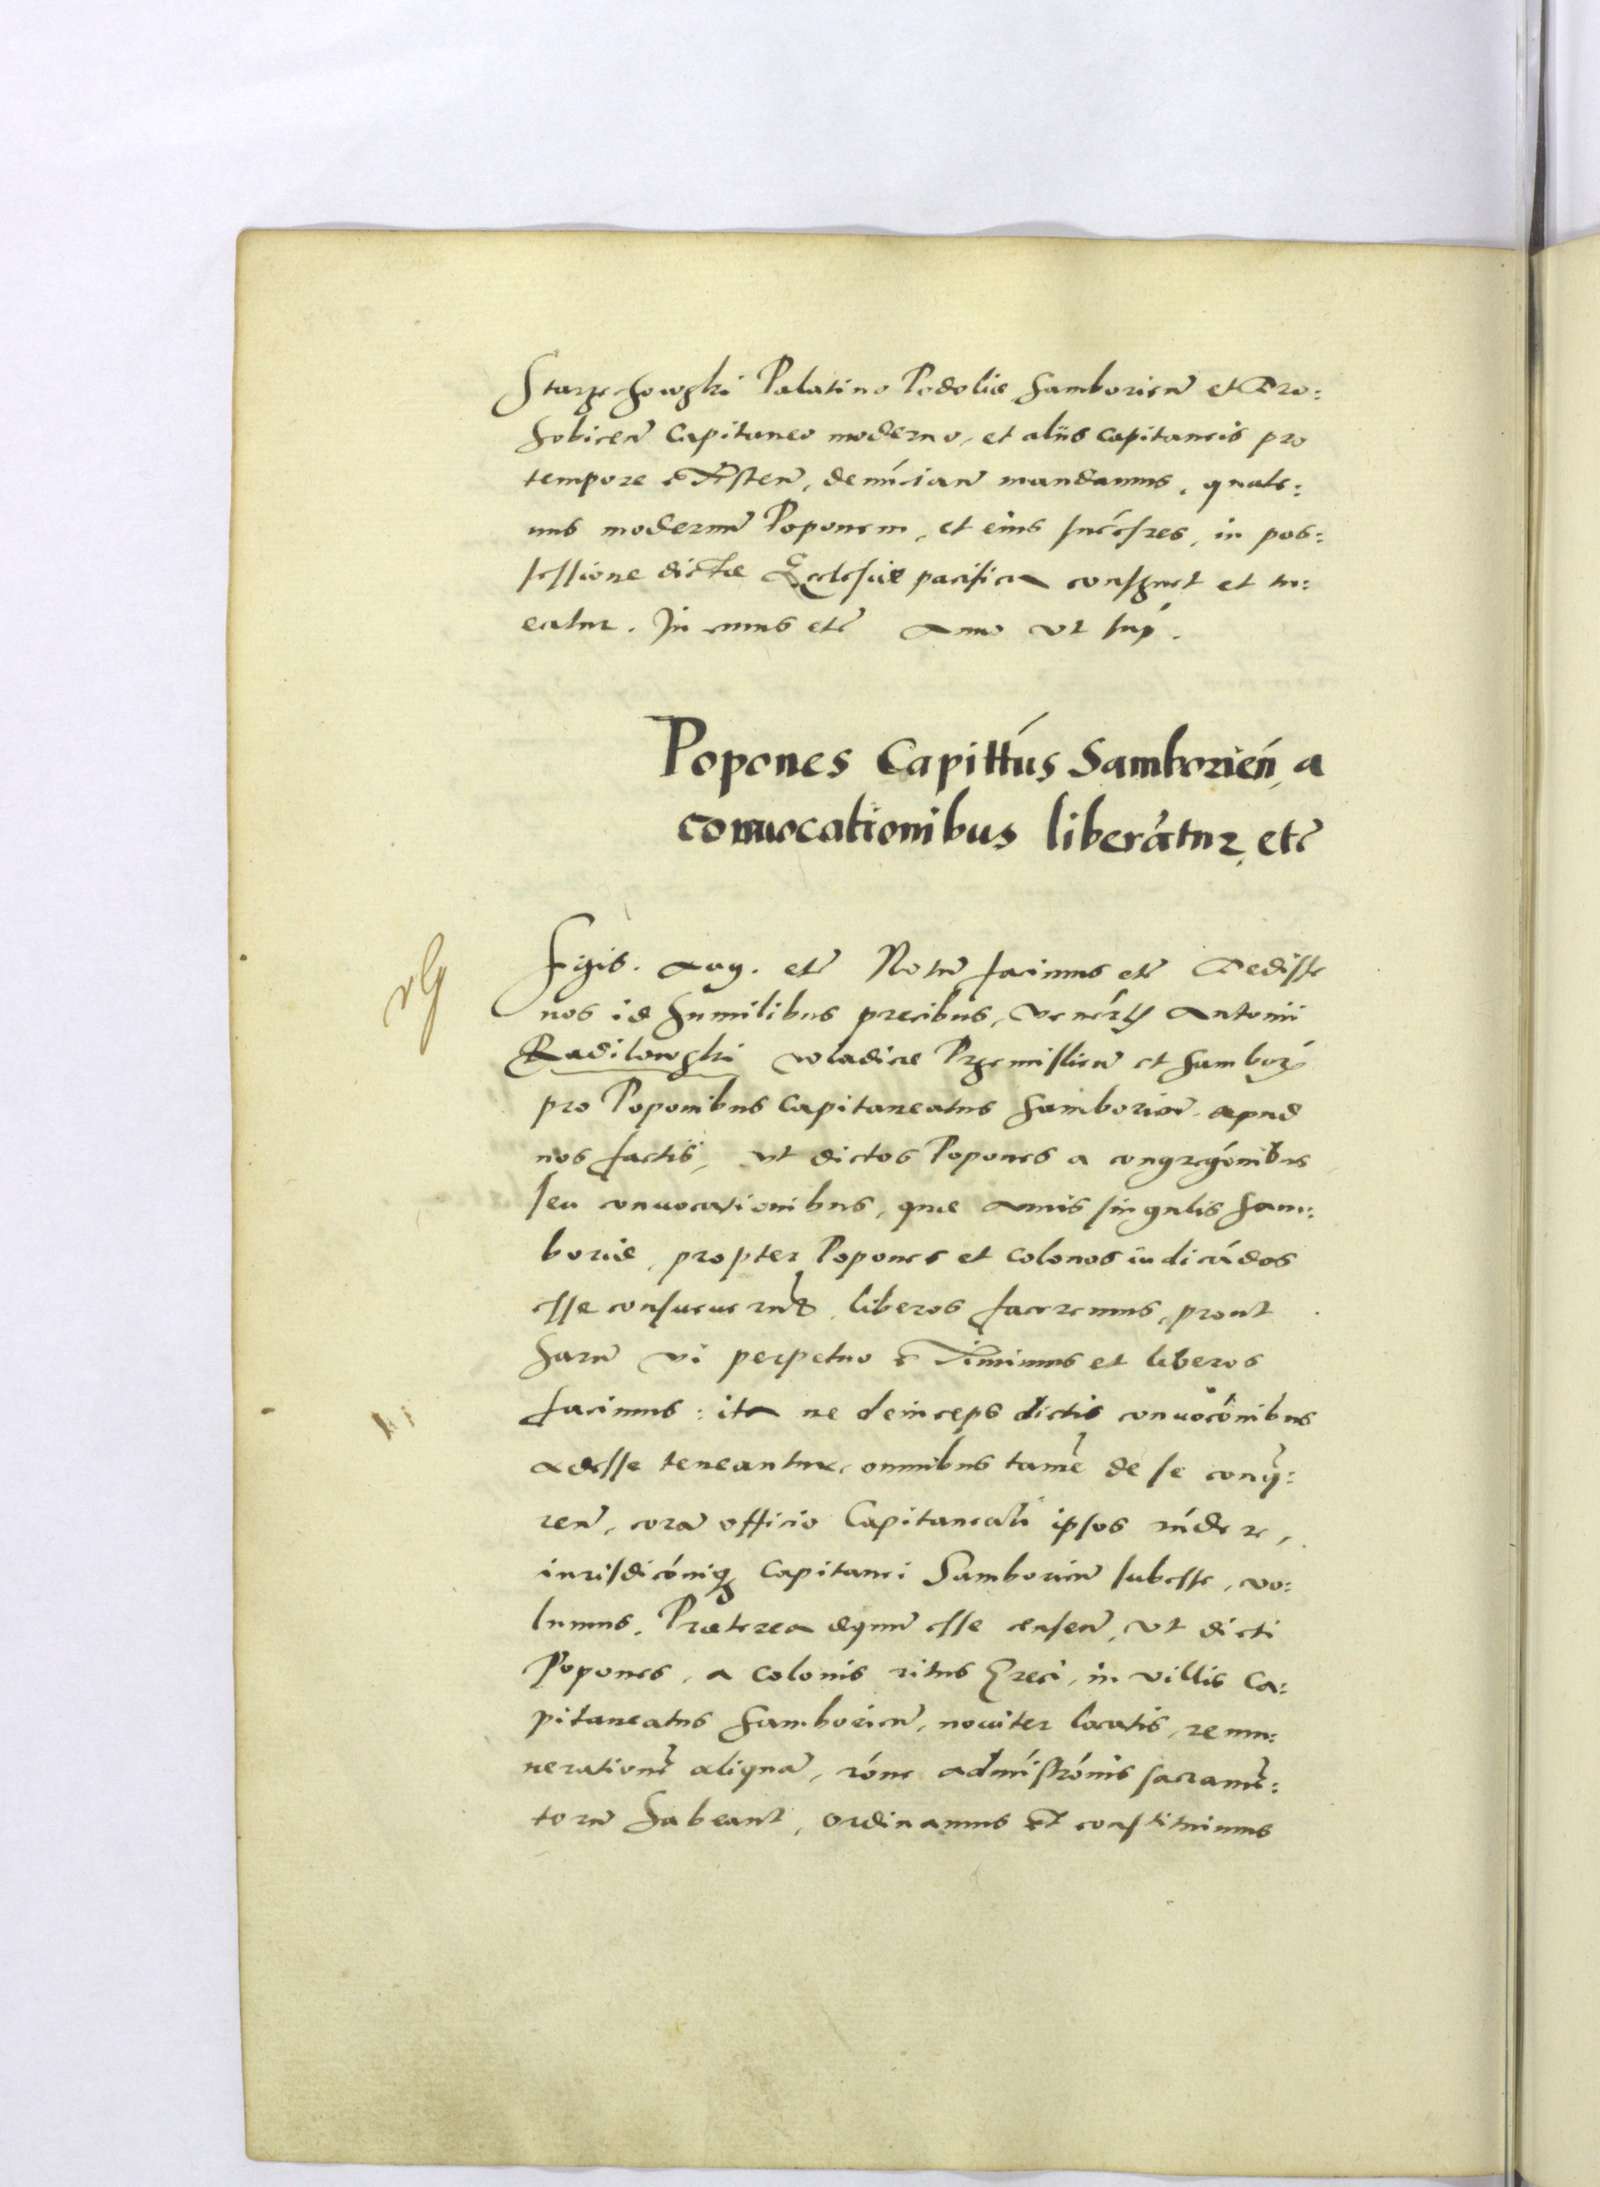 Starzechowski Palatino Podoliæ Samborien̄ et Dro:
hobicen̄ Capitaneo moderno, et aliis capitaneis pro
tempore existen̄, denúcian̄ mandamus, quate:
nus modernū Poponem, et eius succ̄sres, in pos:
sessione dictæ Ecclesiæ pacifica consȝuet et tu:
eatur. In cuius etc̄ Anno vt sup̄.
Popones Capitt́us Samborień, a
conuocationibus liberātur, etc̄
Sigis. Aug. etc̄ Notū facimus etc̄ Dedisse
nos id humilibus precibus, venerb̄ Antonii
Radilowski wladicæ Przemislien̄ et Sambor̄
pro Poponibus Capitaneatus Samborien̄ apud
nos factis, vt dictos Popones a congregónibus
seu conuocationibus, quæ annis singulis Sam:
boriæ, propter Popones et colonos iudicádos
esse consueuerūt, liberos faceremus, prout
harū vi perpetuo eximimus et liberos
facimus: ita ne deinceps dictis conuocónibus
adesse teneantur, omnibus tamē de se conq̄:
ren̄, corā officio Capitaneali ipsos rńdere,
iurisdicóniq̨ Capitanei Samborien̄ subesse, vo:
lumus. Præterea æquū esse censen̄, vt dicti
Popones, a colonis ritus Greci, in villis Ca:
pitaneatus Samborien̄, nouiter locatis, remu:
nerationē aliquā, róne admístrónis sacramē:
torū habeant, ordinamus et constituimus